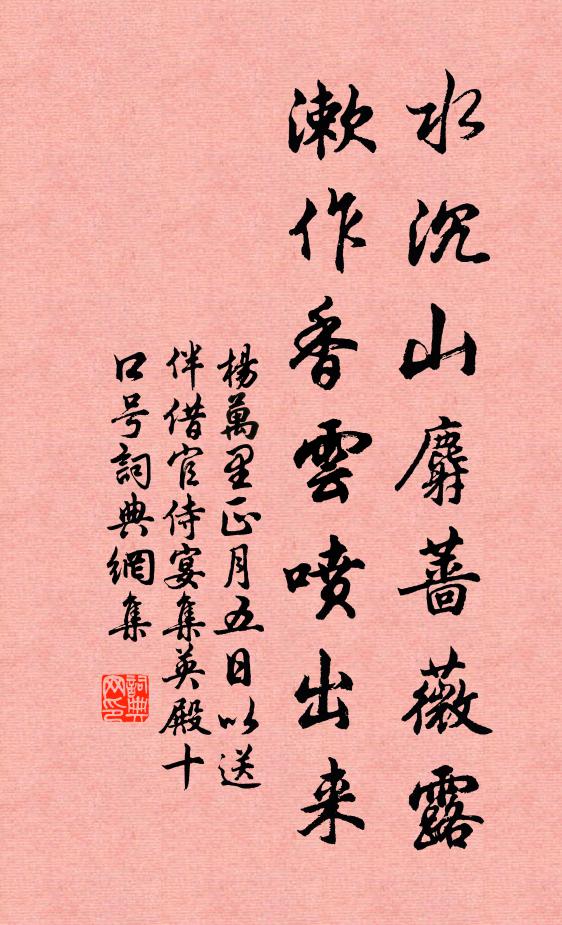 水沉山麝薔薇露
漱作香雲噴出来
楊萬里正月五日以送
伴借官侍宴集英殿十
口号詞典網集
詞典网印